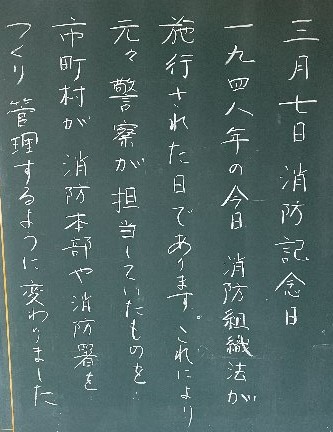 三月七日消防記念日
一九四八年の今日消防組織法が
施行された日であります。これにより
元々警察が担当していたものを
市町村が消防本部や消防署を
つくり管理するように変わりました